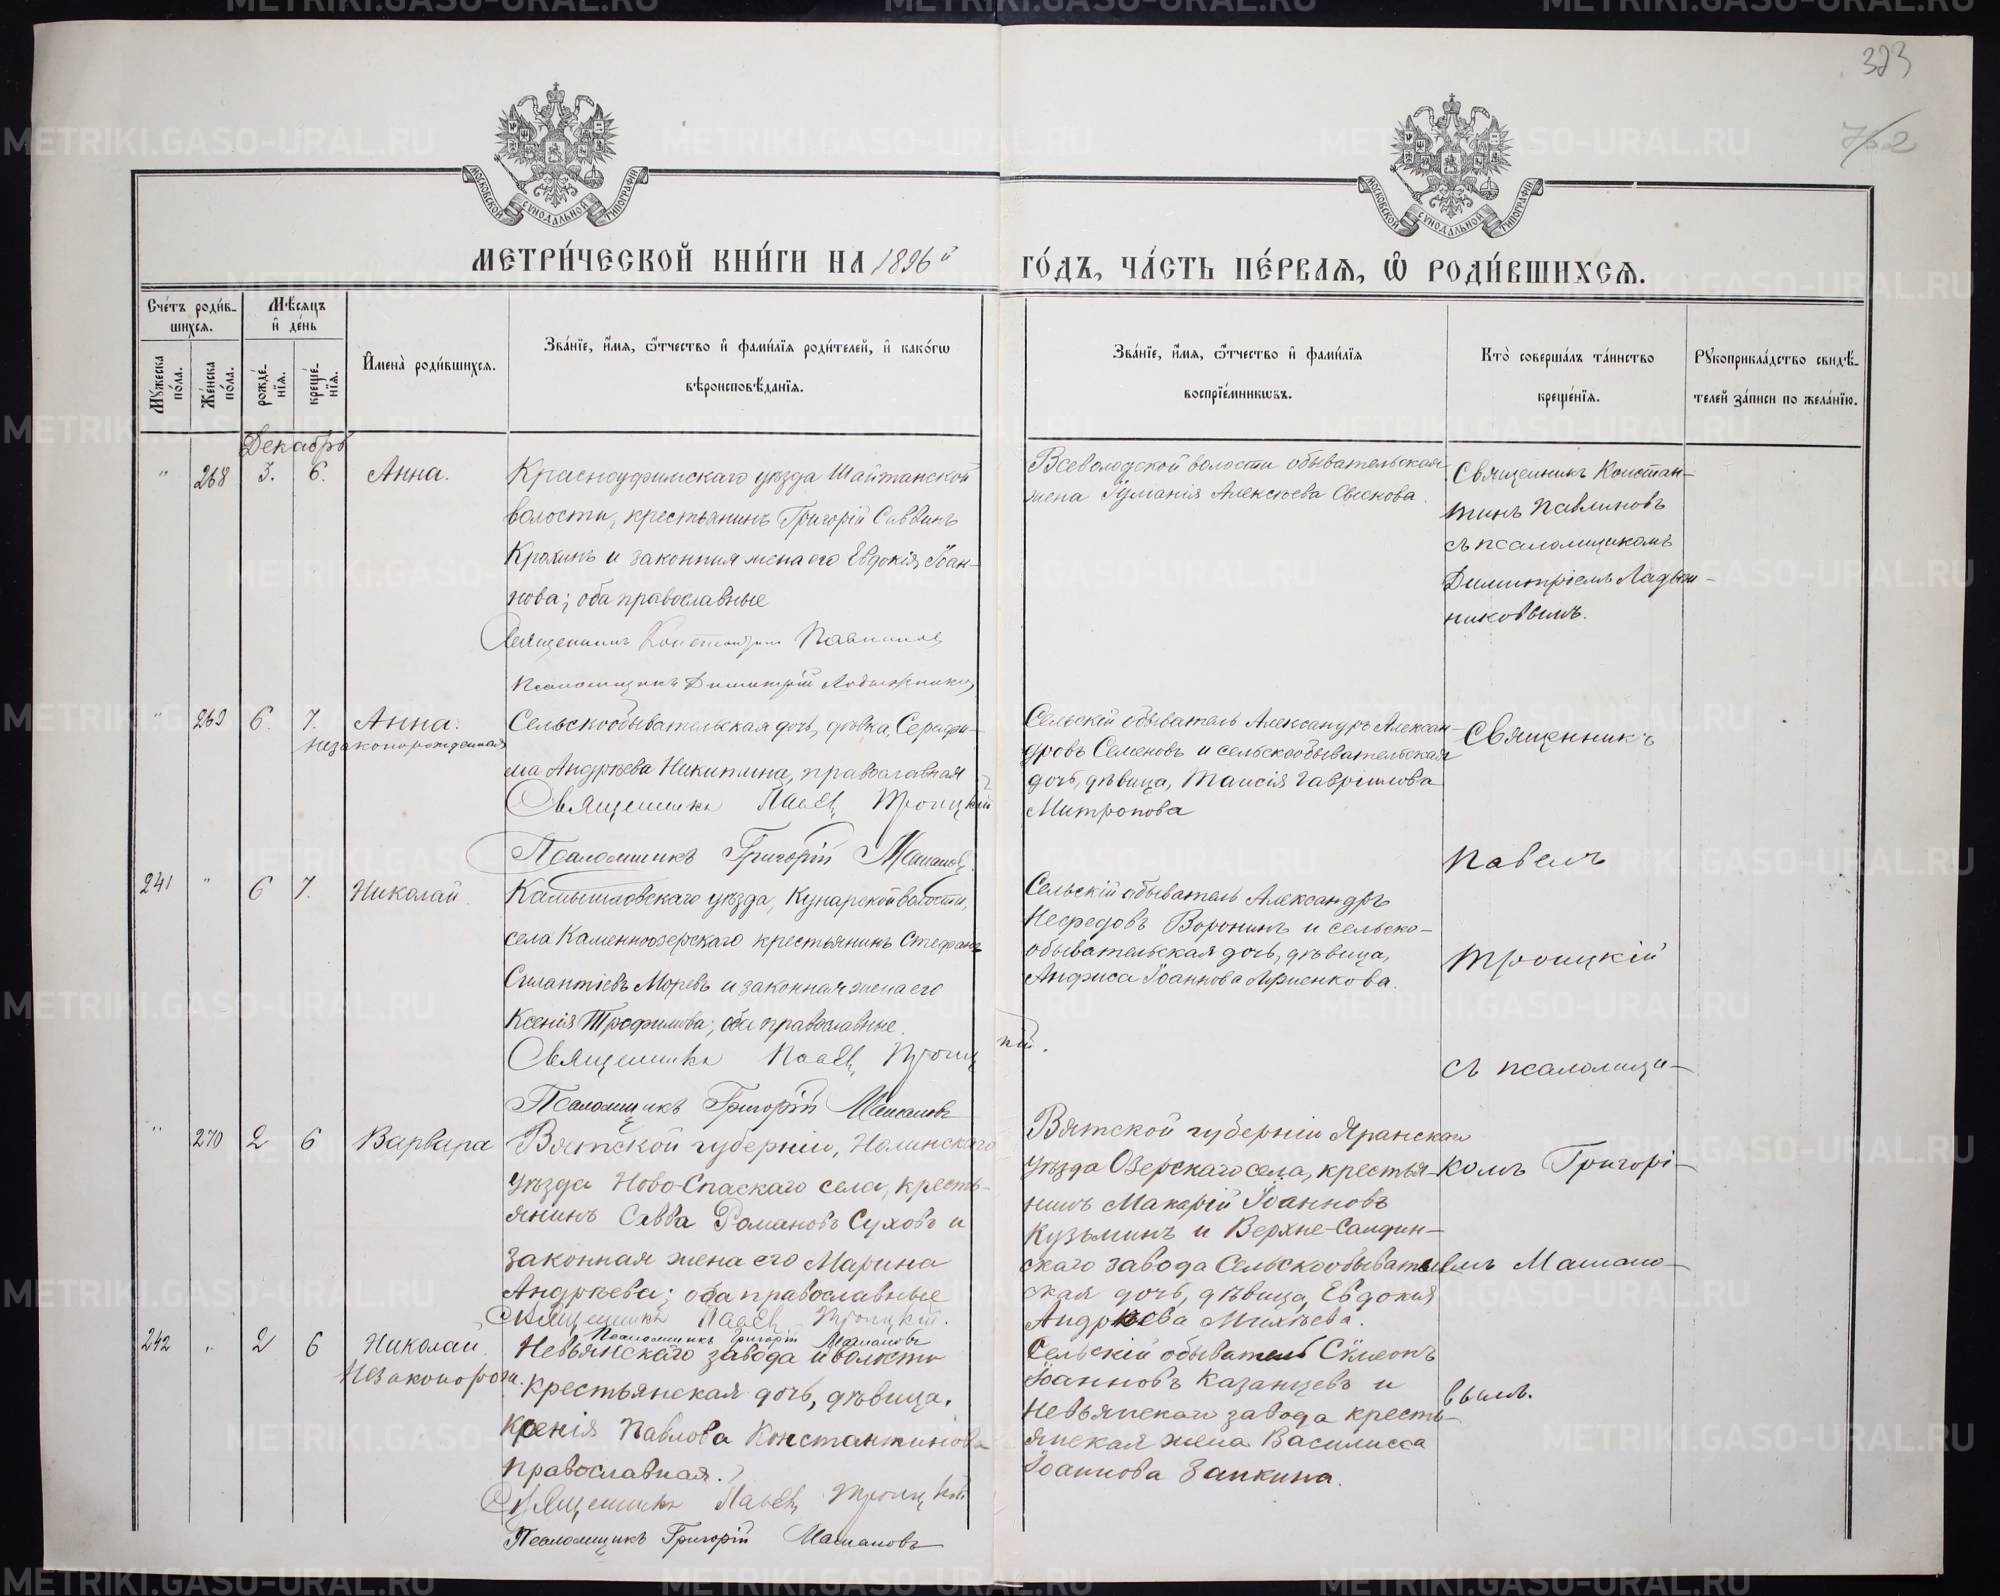 323
752
МОСКОВСКОЙ СУНОДАЛЬНОЙ ТИПОГРАФІИ
МОСКОВСКОЙ СУНОДАЛЬНОЙ ТИПОГРАФІИ
МЕТРИ́ЧЕСКОЙ КНИ́ГИ НА 1896й
ГО́ДЪ, ЧА́СТЬ ПЕ́РВАѦ, Ѽ РОДИ́ВШИХСѦ.
Сче́тъ роди́в-
шихсѧ.
Мꙋ́жеска по́ла.
Же́нска по́ла.
Мѣ́сѧцъ
и҆ де́нь
рожде́-
нїѧ.
креще́-
нїѧ.
И҆мена̀ роди́вшихсѧ.
Зва́нїе, и҆́мѧ, ѻ҆́тчество и҆ фами́лїѧ роди́телей, и҆ како́гѡ
вѣроисповѣ́данїѧ.
Зва́нїе, и҆́мѧ, ѻ҆́тчество и҆ фами́лїѧ
воспрїе́мникѡвъ.
Кто̀ соверша́лъ та́инство
креще́нїѧ.
Рꙋкоприкла́дство свидѣ́-
телей за́писи по жела́нїю.
Декабрь
" 268 3. 6. Анна.
Красноуфимскаго уѣзда Шайтанской
волости, крестьянинъ Григорій Саввинъ
Крохинъ и законная жена его Евдокія Іоан-
нова; оба православные
Священникъ Константинъ Павлиновъ
Псаломщикъ Димитрій Ладыжниковъ
Всеволодской волости обывательская
жена Алексѣева
Священникъ Констан-
тинъ Павлиновъ
съ псаломщикомъ
Димитріемъ Ладыж-
никовымъ.
" 269 6. 7. Анна.
незаконорожденная
Сельскообывательская дочь, дѣвка, Серафи-
ма Андрѣева Никитина, православная
Священникъ Павелъ Троицкій
Псаломщикъ Григорій Мамановъ
Сельскій обыватель Александръ Алексан-
дровъ Семеновъ и сельскообывательская
дочь, дѣвица, Таисія Гаврилова
Митропова
Священникъ
Павелъ
241 " 6 7. Николай
Камышловскаго уѣзда, Кунарской волости,
села Каменноозерскаго крестьянинъ Стефанъ
Силантіевъ Моревъ и законная жена его
Ксенія Трофимова; оба православные.
Священникъ Павелъ Троицкій.
Псаломщикъ Григорій Мамановъ
Сельскій обыватель Александръ
Воронинъ и сельско-
обывательская дочь, дѣвица,
Анфиса Іоаннова
Троицкій
съ псаломщи-
" 270 2 6 Варвара
Вятской губерніи, Нолинскаго
уѣзда Ново-Спаскаго села, кресть-
янинъ Савва Романовъ Суховъ и
законная жена его Марина
Андрѣева; оба православные
Священникъ Павелъ Троицкій.
Псаломщикъ Григорій Мамановъ
Вятской губерніи Яранскаго
уѣзда Озерскаго села, крестья-
нинъ Макарій Іоанновъ
Кузьминъ и Верхне-Салдин-
скаго завода Сельскообыватель-
ская дочь, дѣвица, Евдокия
Андрѣева Михѣева.
комъ Григорі-
емъ Мамано-
242 " 2 6 Николай
Незаконорож.
Невьянскаго завода и волости
крестьянская дочь, дѣвица,
Ксенія Павлова Константинова
православная.
Священникъ Павелъ Троицкій
Псаломщикъ Григорій Мамановъ
Сельскій обыватель Сѵмеонъ
Іоанновъ Казанцевъ и
Невьянскаго завода кресть-
янская жена Василисса
Іоаннова Заикина.
вымъ.
METRIKI.GASO-URAL.RU